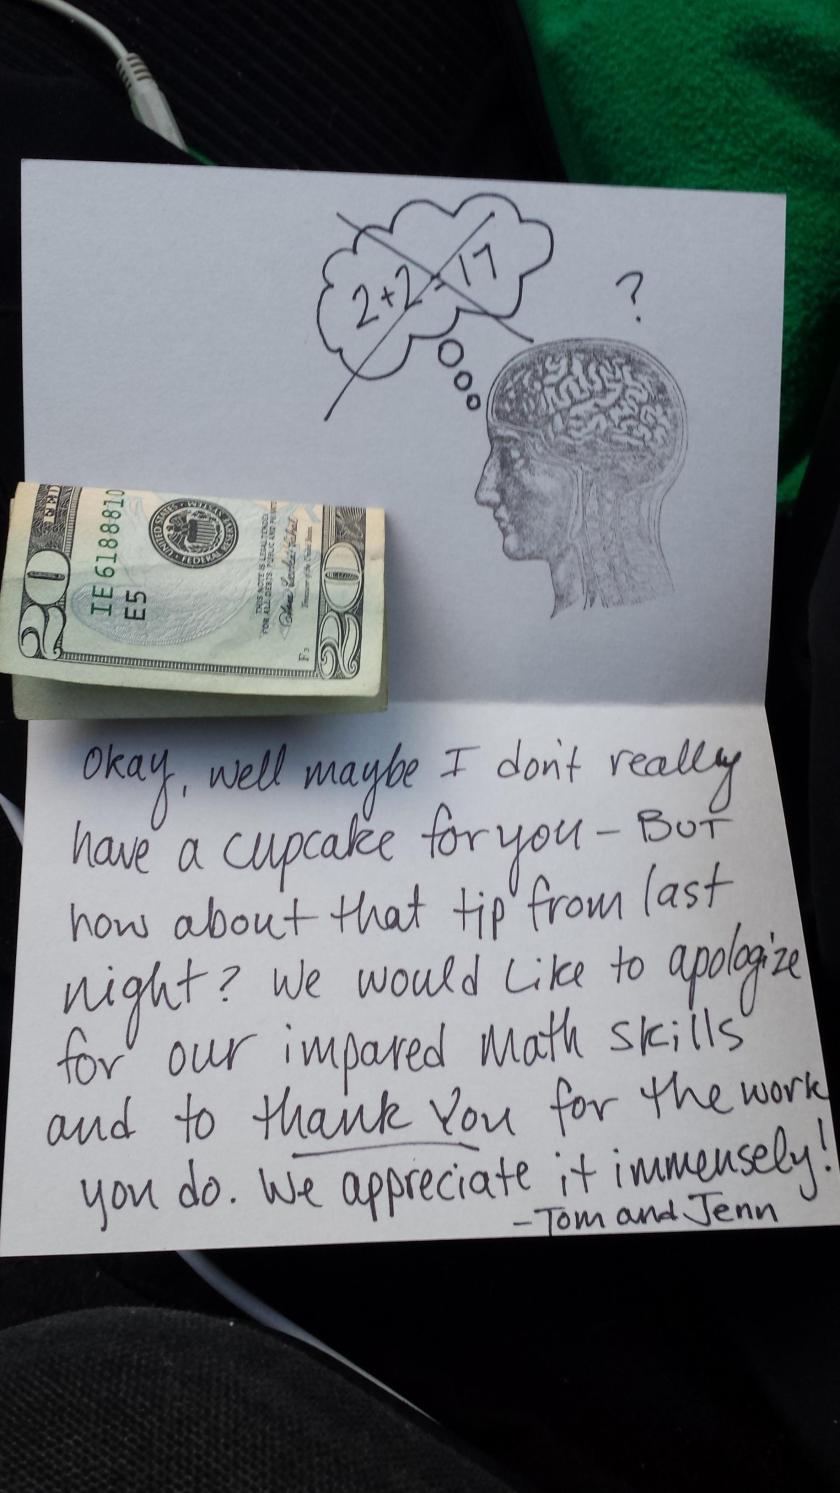 2+2=17
?
20
20
IE6188810
E5
UNITED STATES
FEDERAL RESERVE
THIS NOTE IS LEGAL TENDER
FOR ALL DEBTS, PUBLIC AND PRIVATE
Treasurer of the United States.
F
Okay, well maybe I don't really
have a cupcake for you - BUT
how about that tip from last
night? We would like to apologize
for our impared math skills
and to thank you for the work
you do. We appreciate it immensely!
-Tom and Jenn